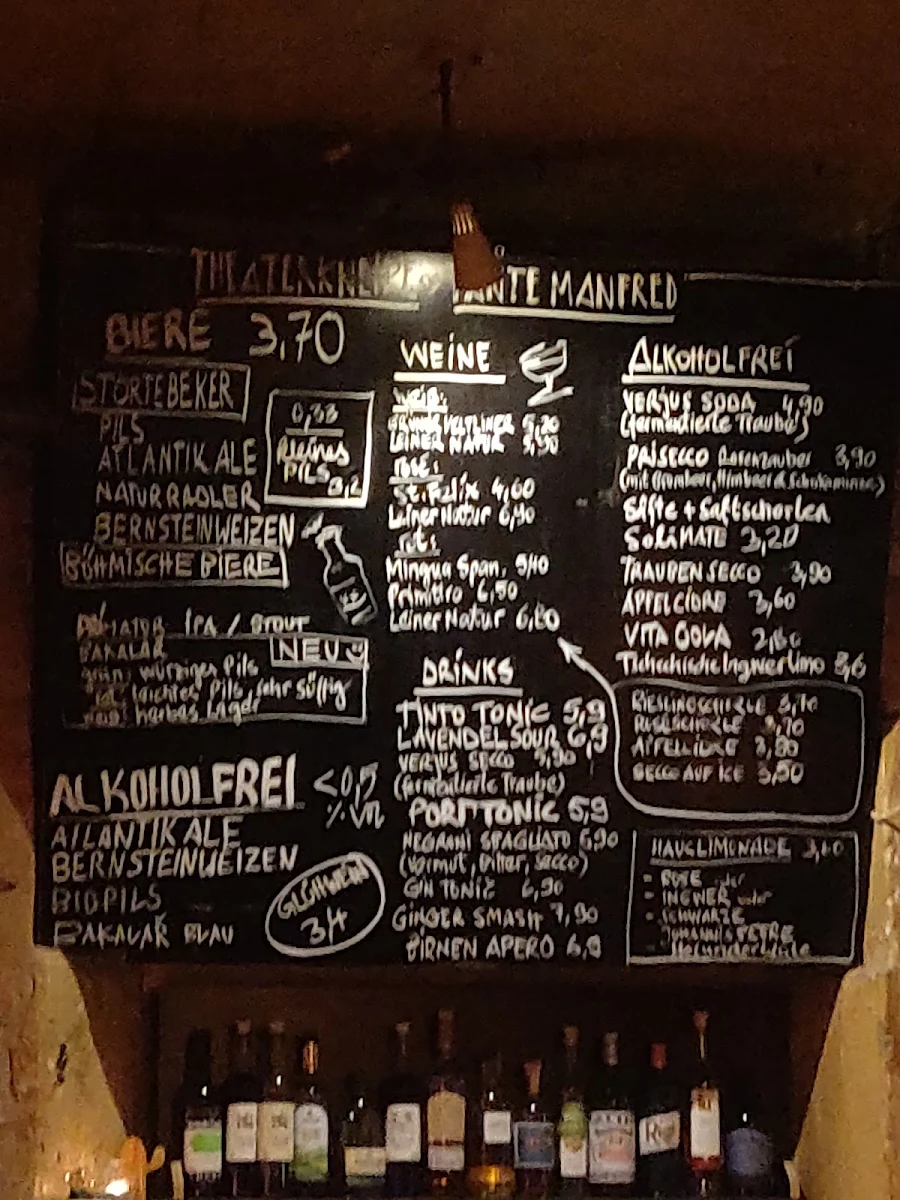 THEATERKNEIPE TANTE MANFRED
BIERE 3,70
STÖRTEBEKER
PILS
ATLANTIK ALE
NATURRADLER
BERNSTEINWEIZEN
0,33
kleines
PILS 3,2
BÖHMISCHE BIERE
IPA / STOUT
BAKALAR NEU
grün: würziges Pils
leichtes Pils, sehr süffig
herbes Lager
ALKOHOLFREI <0,5
% Vol
ATLANTIK ALE
BERNSTEINWEIZEN
BIOPILS
BAKALAŘ BLAU
GLÜHWEIN
WEINE
Weiß:
GRÜNER VELTLINER 5,20
LEINER NATUR 5,90
Rosé:
St. Felix 4,60
Leiner Natur 6,90
Rot:
Mingua Span. 5,40
Primitivo 6,50
Leiner Natur 6,80
DRINKS
TINTO TONIC 5,9
LAVENDELSOUR 6,9
VERJUS SECCO 5,90
(fermentierte Traube)
PORTTONIC 5,9
NEGRONI SPAGLIATO 6,90
(Wermut, Bitter, Secco)
GIN TONIC 6,90
GINGER SMASH 7,90
BIRNEN APERO 6,9
ALKOHOLFREI
VERJUS SODA 4,90
(fermentierte Traube)
PRISECCO Rosenzauber 3,90
Säfte + Saftschorlen
SOLIMATE 3,20
TRAUBENSECCO 3,90
APFELCIDRE 3,60
VITA COLA
Tschechische Ingwerlimo 3,6
RIESLINGSCHORLE 3,70
ROSÉSCHORLE 3,70
APFELCIDRE 3,80
SECCO AUF ICE 3,50
HAUSLIMONADE 3,60
- ROSE oder
- INGWER oder
- SCHWARZE
JOHANNISBEERE